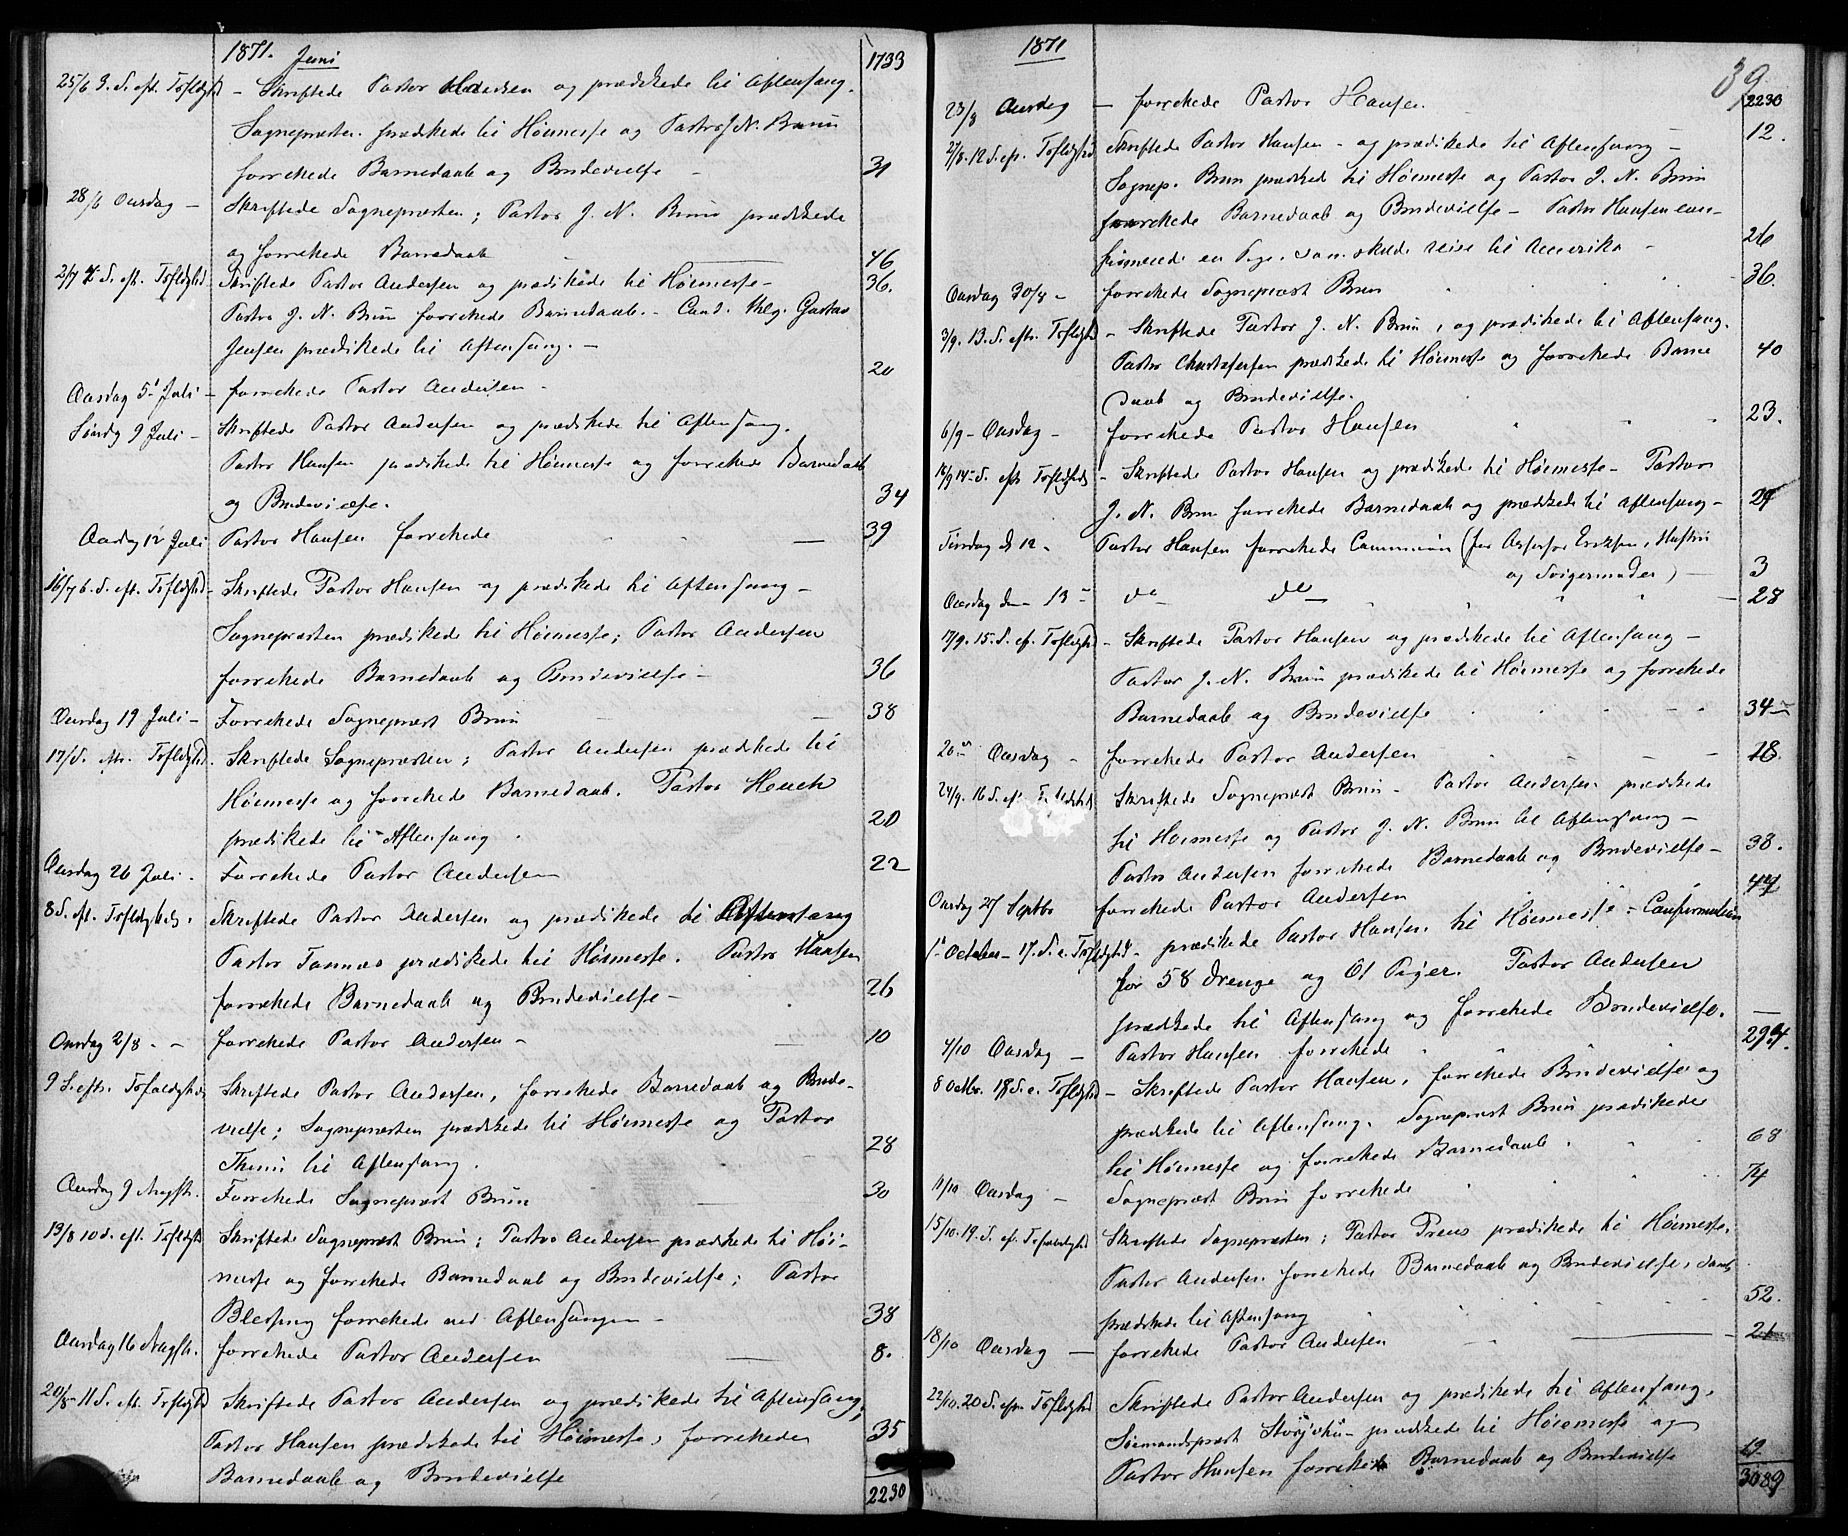 1871. Juni 1733
25/6 3. S. eft. Trefldghd - Skriftede Pastor Madsen og prædikede til Aftensang.
Sognepresten prædikede til Høimesse og Pastor J. N. Brun
forrettede Barnedaab og Brudevielse - 31
28/6 Onsdag - Skriftede Sognepresten; Pastor J. N. Brun prædikede
og forrettede Barnedaab 46
2/7 4 S. eft. Trefldghd. Skriftede Pastor Andersen og prædikede til Høimesse - 36.
Pastor J. N. Brun forrettede Barnedaab. - Cand. thlg. Gustav
Jensen prædikede til Aftensang. - 20
Onsdag 5' Juli - forrettede Pastor Andersen -
Søndg 9 Juli - Skriftede Pastor Andersen og prædikede til Aftensang.
Pastor Hansen prædikede til Høimesse og forrettede Barnedaab
og Brudevielse. 34
Onsdg 12 Juli Pastor Hansen forrettede - 39
16/7 6. S. eft. Trefldghd - Skriftede Pastor Hansen og prædikede til Aftensang -
Sognepresten prædikede til Høimesse; Pastor Andersen
forrettede Barnedaab og Brudevielse - 36
Onsdag 19 Juli - Forrettede Sogneprest Brun - 38
17/S. eftr. Trefldghd. Skriftede Sognepresten; Pastor Andersen prædikede til
Høimesse og forrettede Barnedaab. Pastor Heuch
prædikede til Aftensang. 20
Onsdag 26 Juli. Forrettede Pastor Andersen 22
8 S. eft. Trefldgheds. Skriftede Pastor Andersen og prædikede til Aftensang
Pastor prædikede til Høimesse. Pastor Hansen
forrettede Barnedaab og Brudevielse - 26
Onsdag 2/8. - forrettede Pastor Andersen - 10
9 S. eftr. Trefoldigheds Skriftede Pastor Andersen, forrettede Barnedaab og Brude-
vielse; Sognepresten prædikede til Høimesse og Pastor
til Aftensang. 28
Onsdag 9 Augst. Forrettede Sogneprest Brun 30
13/8 10 S. eft. Trefldghd Skriftede Sogneprest Brun; Pastor Andersen prædikede til Høi-
messe og forrettede Barnedaab og Brudevielse; Pastor
Blessing forrettede ved Aftensangen - 38
Onsdag 16 Augst. forrettede Pastor Andersen 8.
20/8 - 11 S. eft. Trefldghd Skriftede Pastor Andersen og prædikede til Aftensang;
Pastor Hansen prædikede til Høimesse, forrettede 35
Barnedaab og Brudevielse
2230
1871 39
2230
23/8 Onsdag - forrettede Pastor Hansen 12.
27/8. 12 S. eft. Trefldghd Skriftede Pastor Hansen - og prædikede til Aftensang -
Sognep. Brun prædikede til Høimesse og Pastor J. N. Brun
forrettede Barnedaab og Brudevielse - Pastor Hansen con-
firmerede en Pige, som skulde reise til Amerika - 26
Onsdag 30/8 - forrettede Sogneprest Brun 36.
3/9. 13. S. eftr. Trefldghd - Skriftede Pastor J. N. Brun, og prædikede til Aftensang.
Pastor Christofersen prædikede til Høimesse og forrettede Barne 40
daab og Brudevielse.
6/9 - Onsdag - forrettede Pastor Hansen 23.
14 S. eftr Trefldgheds - Skriftede Pastor Hansen og prædikede til Høimesse - Pastor
J. N. Brun forrettede Barnedaab og prædikede til Aftensang -
Tirsdag d 12 - Pastor Hansen forrettede Communion (for Eriksen, Hustru
og Svigermoder) - 3
Onsdag den 13 - do do 28
17/9. 15. S. ef. Trefldghd - Skriftede Pastor Hansen og prædikede til Aftensang -
Pastor J. N. Brun prædikede til Høimesse og forrettede
Barnedaab og Brudevielse 34
20 Onsdag - forrettede Pastor Andersen - 18.
24/9. 16 S. eft Trefldghd Skriftede Sogneprest Brun - Pastor Andersen prædikede
til Høimesse og Pastor J. N. Brun til Aftensang -
Pastor Andersen forrettede Barnedaab og Brudevielse - 38.
Onsdag 27 Septbr forrettede Pastor Andersen 44
1 October - 17. S. e. Trefldghd. - prædikede Pastor Hansen til Høimesse. - Confirmation
for 58 Drenge og 61 Piger. Pastor Andersen
prædikede til Aftensang og forrettede Brudevielse. -
4/10 Onsdag - Pastor Hansen forrettede 294.
8 Octbr. 18 S. e. Trefldghd - Skriftede Pastor Hansen, forrettede Brudevielse og
prædikede til Aftensang. Sogneprest Brun prædikede
til Høimesse og forrettede Barnedaab. 68
11/10 Onsdag - Sogneprest Brun forrettede 74
15/10. 19. S. ef. Trefoldighd Skriftede Sognepresten; Pastor Preus prædikede til Høimesse,
Pastor Andersen forrettede Barnedaab og Brudevielse, samt
prædikede til Aftensang 52.
18/10 Onsdag - forrettede Pastor Andersen - 21
22/10. 20 S. eftr Trefldghd Skriftede Pastor Andersen og prædikede til Aftensang.
Sømandsprest Storjohn - prædikede til Høimesse og
Pastor Hansen forrettede Barnedaab og Brudevielse 19
3089